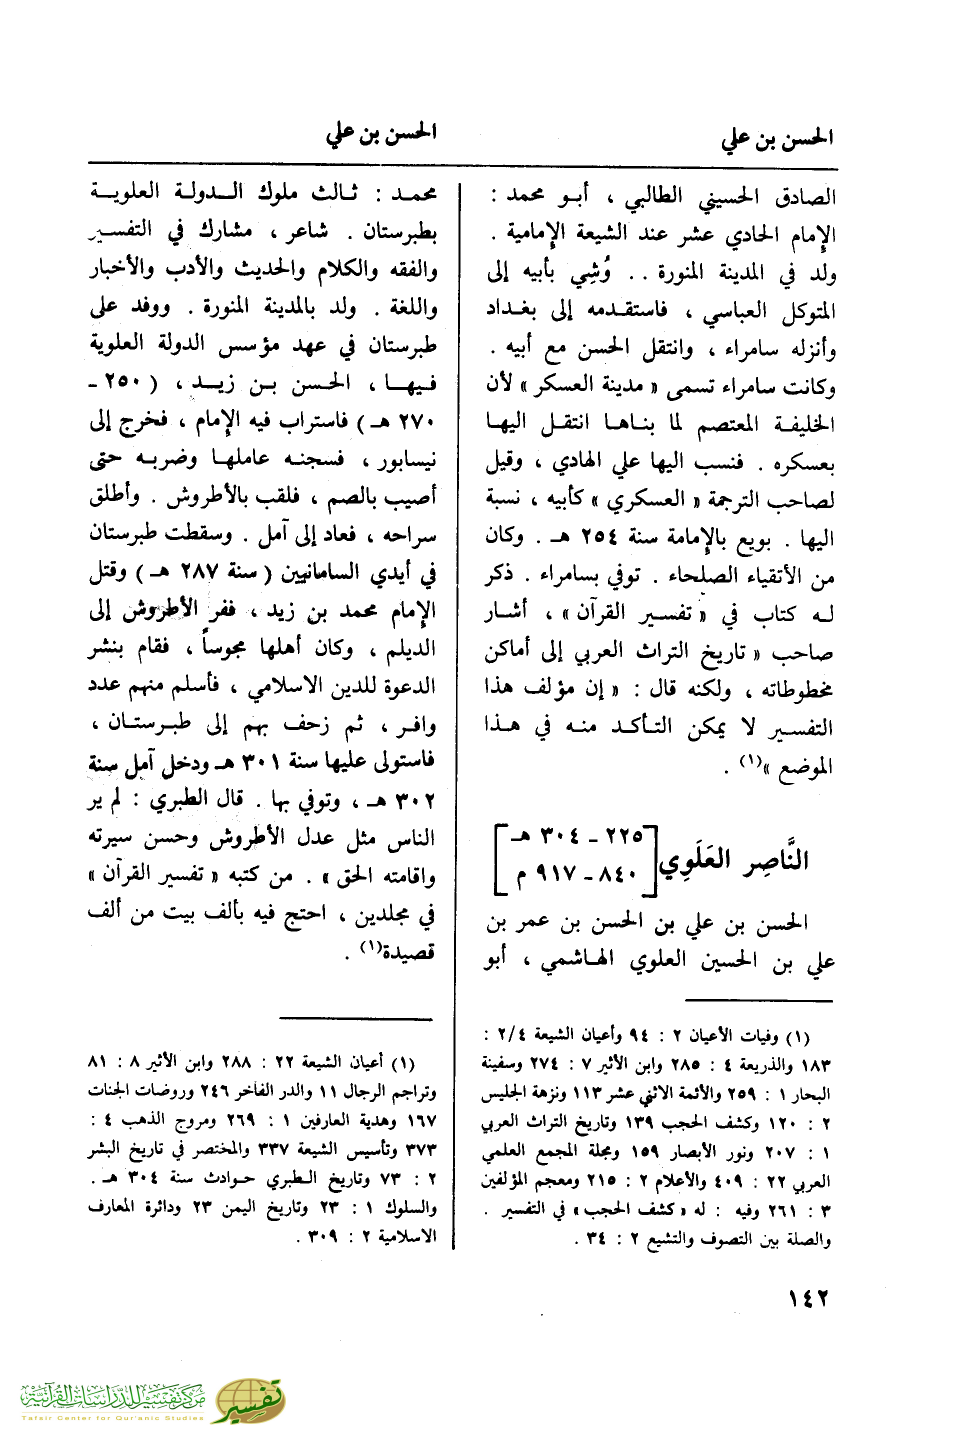 الحسن بن علي
الحسن بن علي
الصادق الحسيني الطالبي ، أبو محمد :
الإمام الحادي عشر عند الشيعة الإمامية .
ولد في المدينة المنورة . . وُشِي بأبيه إلى
المتوكل العباسي ، فاستقدمه إلى بغداد
وأنزله سامراء ، وانتقل الحسن مع أبيه .
وكانت سامراء تسمى « مدينة العسكر » لأن
الخليفة المعتصم لما بناها انتقل اليها
بعسكره . فنسب اليها علي الهادي ، وقيل
لصاحب الترجمة « العسكري » كأبيه ، نسبة
اليها . بويع بالإمامة سنة ٢٥٤ هـ . وكان
من الأتقياء الصلحاء . توفي بسامراء . ذكر
له كتاب في « تفسير القرآن » ، أشار
صاحب « تاريخ التراث العربي إلى أماكن
مخطوطاته ، ولكنه قال : « إن مؤلف هذا
التفسير لا يمكن التأكد منه في هذا
الموضع »(١) .
النَّاصِر العَلَوِي [٢٢٥ ـ ٣٠٤ هـ
٨٤٠ ـ ٩١٧ م]
الحسن بن علي بن الحسن بن عمر بن
علي بن الحسين العلوي الهاشمي ، أبو
(١) وفيات الأعيان ٢ : ٩٤ وأعيان الشيعة ٢/٤ :
١٨٣ والذريعة ٤ : ٢٨٥ وابن الأثير ٧ : ٢٧٤ وسفينة
البحار ١ : ٢٥٩ والأئمة الاثني عشر ١١٣ ونزهة الجليس
٢ : ١٢٠ وكشف الحجب ١٣٩ وتاريخ التراث العربي
١ : ٢٠٧ ونور الأبصار ١٥٩ ومجلة المجمع العلمي
العربي ٢٢ : ٤٠٩ والأعلام ٢ : ٢١٥ ومعجم المؤلفين
٣ : ٢٦١ وفيه : له « كشف الحجب » في التفسير .
والصلة بين التصوف والتشيع ٢ : ٣٤ .
محمد : ثالث ملوك الدولة العلوية
بطبرستان . شاعر ، مشارك في التفسير
والفقه والكلام والحديث والأدب والأخبار
واللغة . ولد بالمدينة المنورة . ووفد على
طبرستان في عهد مؤسس الدولة العلوية
فيها ، الحسن بن زيد ، ( ٢٥٠ ـ
٢٧٠ هـ ) فاستراب فيه الإمام ، فخرج إلى
نيسابور ، فسجنه عاملها وضربه حتى
أصيب بالصم ، فلقب بالأطروش . وأطلق
سراحه ، فعاد إلى آمل . وسقطت طبرستان
في أيدي السامانيين ( سنة ٢٨٧ هـ ) وقتل
الإمام محمد بن زيد ، ففر الأطروش إلى
الديلم ، وكان أهلها مجوساً ، فقام بنشر
الدعوة للدين الاسلامي ، فأسلم منهم عدد
وافر ، ثم زحف بهم إلى طبرستان ،
فاستولى عليها سنة ٣٠١ هـ ودخل آمل سنة
٣٠٢ هـ ، وتوفي بها . قال الطبري : لم ير
الناس مثل عدل الأطروش وحسن سيرته
واقامته الحق » . من كتبه « تفسير القرآن »
في مجلدين ، احتج فيه بألف بيت من ألف
قصيدة(١) .
(١) أعيان الشيعة ٢٢ : ٢٨٨ وابن الأثير ٨ : ٨١
وتراجم الرجال ١١ والدر الفاخر ٢٤٦ وروضات الجنات
١٦٧ وهدية العارفين ١ : ٢٦٩ ومروج الذهب ٤ :
٣٧٣ وتأسيس الشيعة ٣٣٧ والمختصر في تاريخ البشر
٢ : ٧٣ وتاريخ الطبري حوادث سنة ٣٠٤ هـ .
والسلوك ١ : ٢٣ وتاريخ اليمن ٢٣ ودائرة المعارف
الاسلامية ٢ : ٣٠٩ .
١٤٢
مركز تفسير للدراسات القرآنية
Tafsir Center for Qur'anic Studies
تفسير